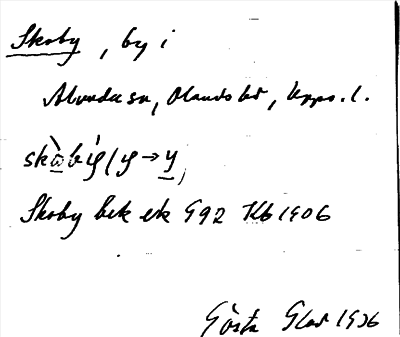 Skoby, by i
Alunda sn, Olands hd, Upps. l.
Skoby bek ek G92 Kb 1906
Gösta Glad 1936